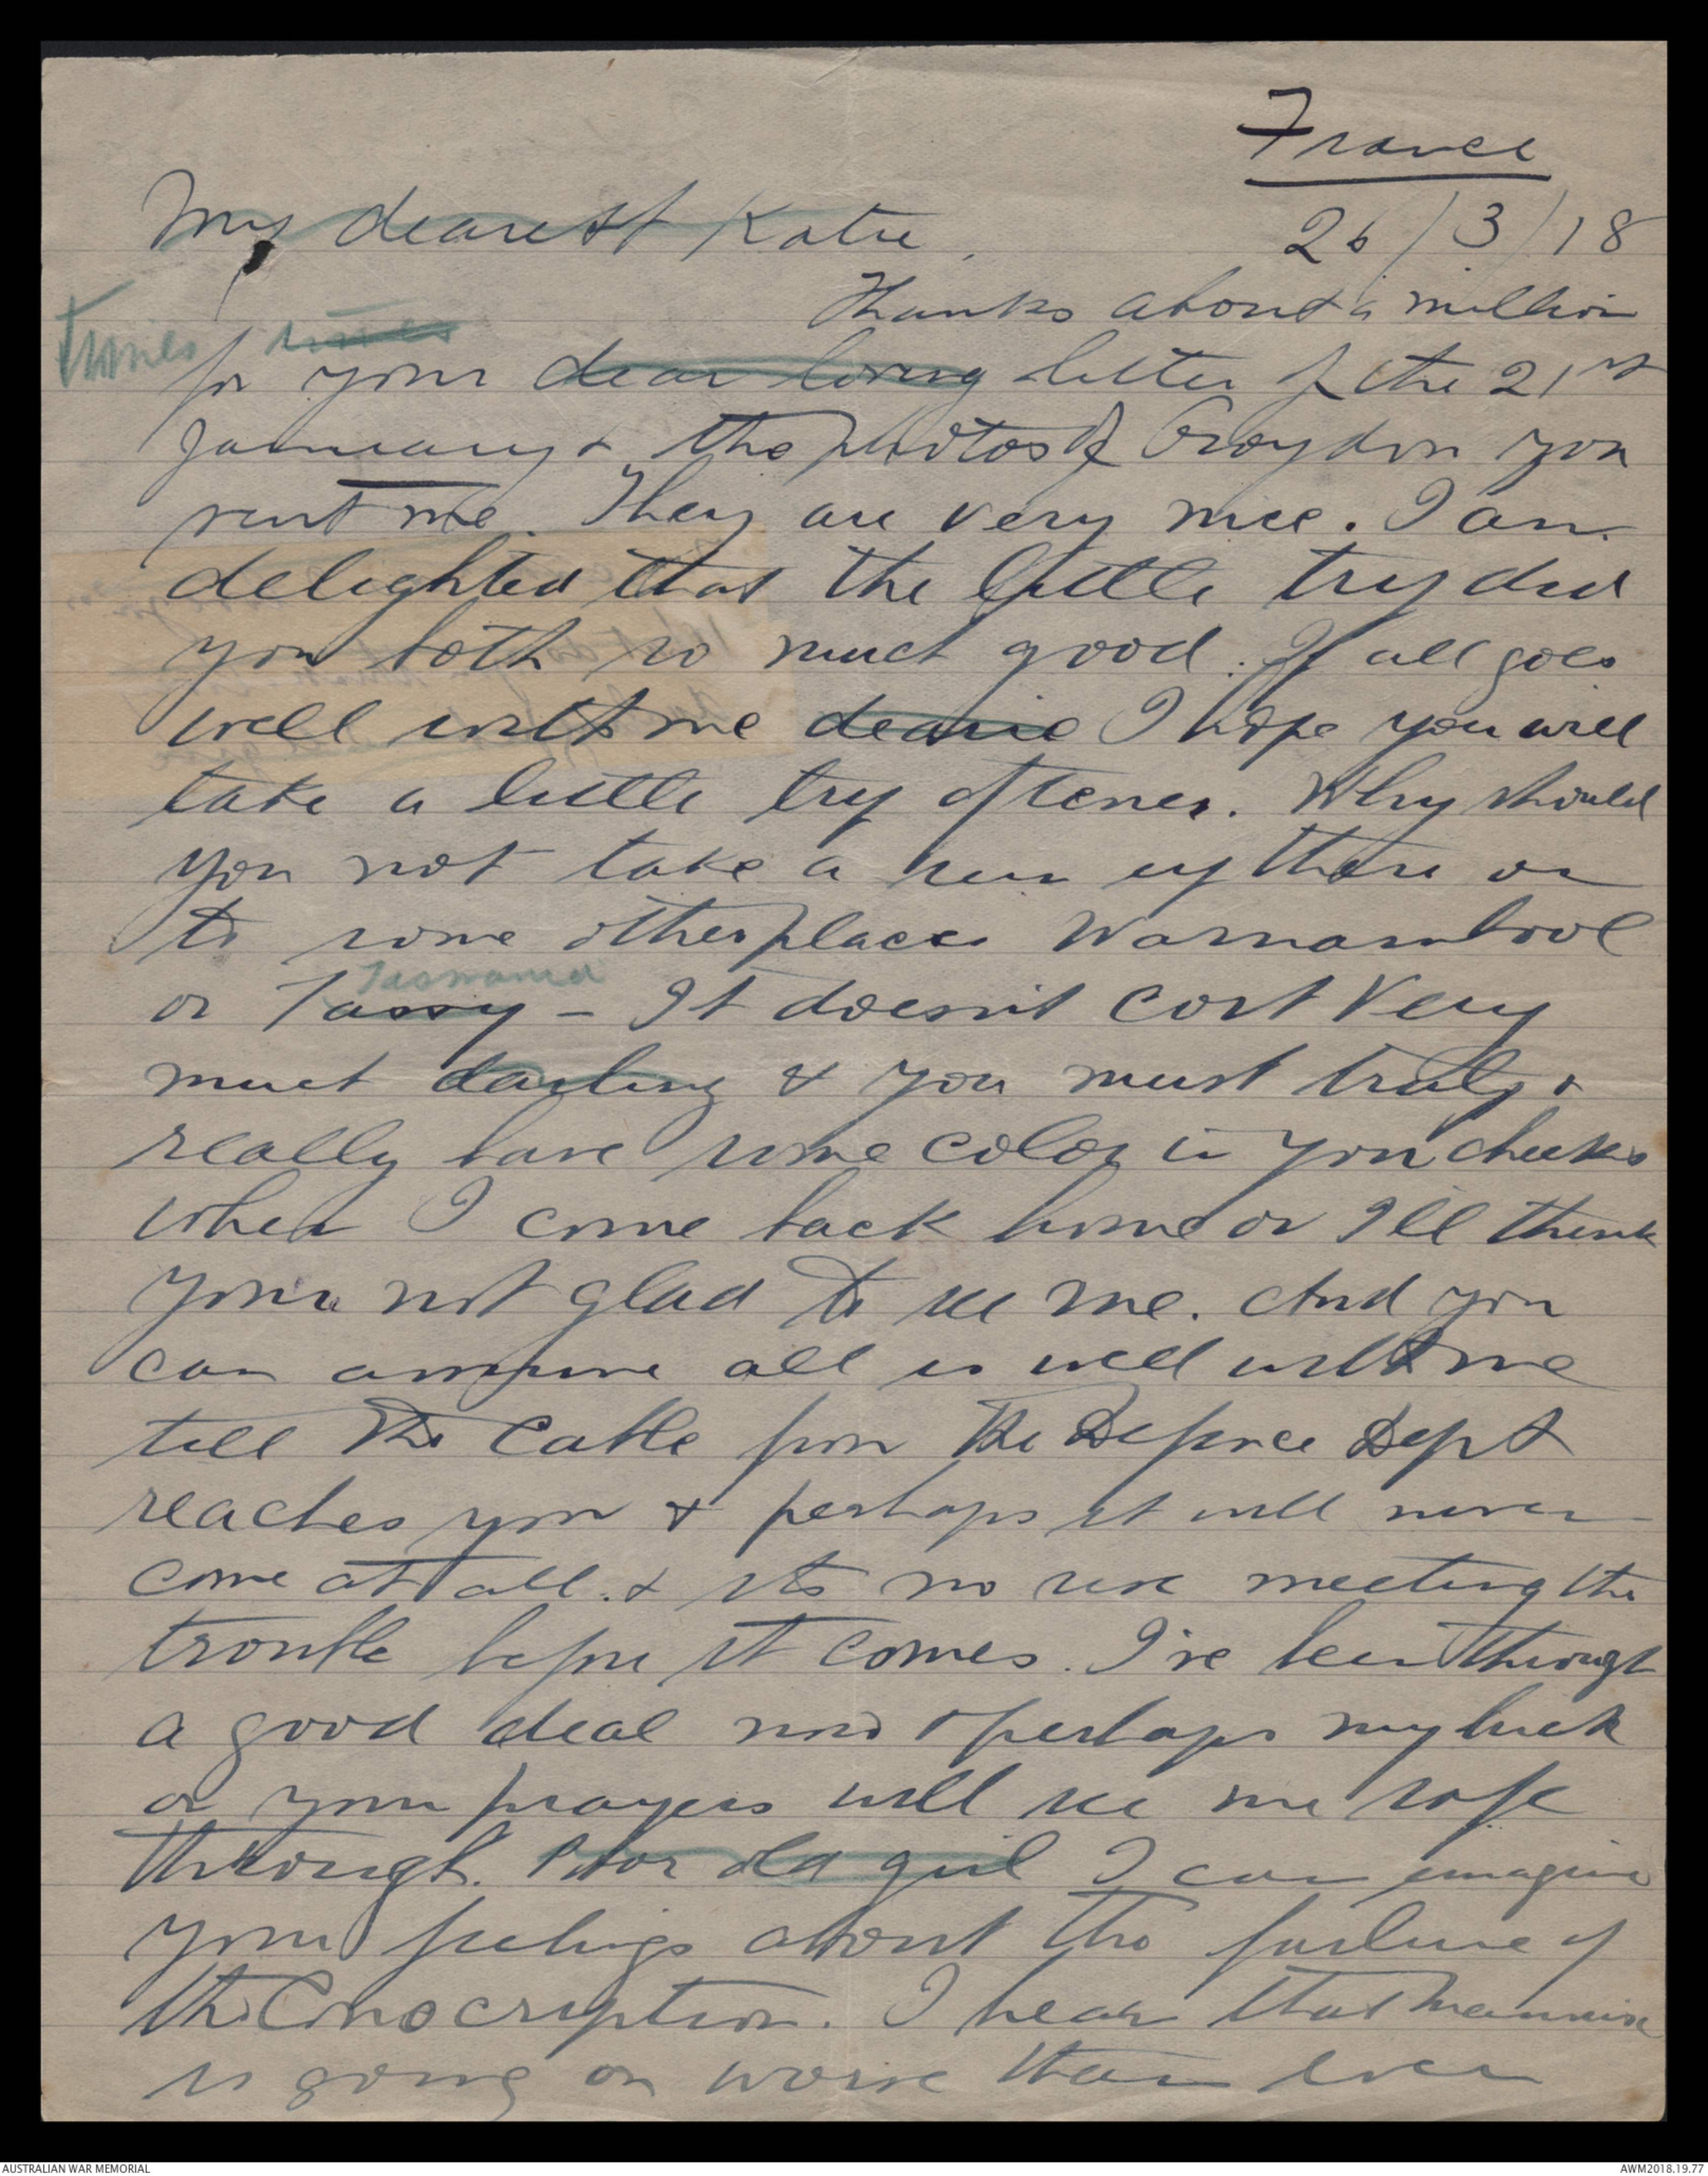 France
My dearest Katie, 26/3/18
Thanks about a million
times times
for your dear loving letter of the 21st
January & the photos of Croydon you
sent me. They are very nice. I am
delighted that the little trip did
you both so much good. If all goes
well with me dearie I hope you will
take a little trip oftener. Why should
you not take a run up there or
to some other places Warnambool
Tasmania
or Tassy - It doesn't cost very
much darling & you must truly &
really have some color in your cheeks
when I come back home or I'll think
your not glad to see me. And you
can assume all is well with me
till the Cable from the Defence Dept
reaches you & perhaps it will never
come at all. & its no use meeting the
trouble before it comes. I've been through
a good deal now & perhaps my luck
or your prayers will see me safe
through. Poor old girl I can imagine
your feelings about the failure of
the Conscription. I hear that Mannix
is going on worse than ever
AUSTRALIAN WAR MEMORIAL
AWM2018.19.77